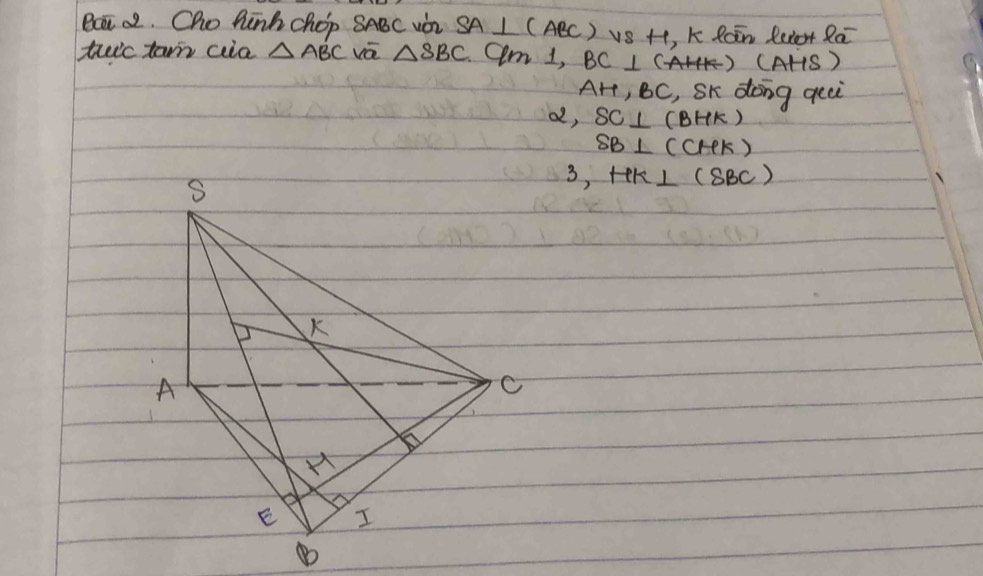 Bài 2. Cho hình chóp SABC với SA ⊥ (ABC) vs H, K lần lượt là
trực tâm của △ ABC và △SBC. Cm 1, BC ⊥ (AHK) (AHS)
AH, BC, SK đồng qui
2, SC ⊥ (BHK)
SB ⊥ (CHK)
3, HK ⊥ (SBC)
S
K
A
C
H
E
I
B